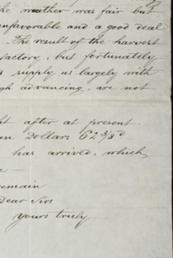 the weather was fair but
unfavorable and a good deal
. The result of the harvest
factory, but fortunately
supply us largely with
gh advancing, are not
ht after at present
Dollars 62 3/8 d
has arrived, which
remain
Dear Sirs
Yours truly